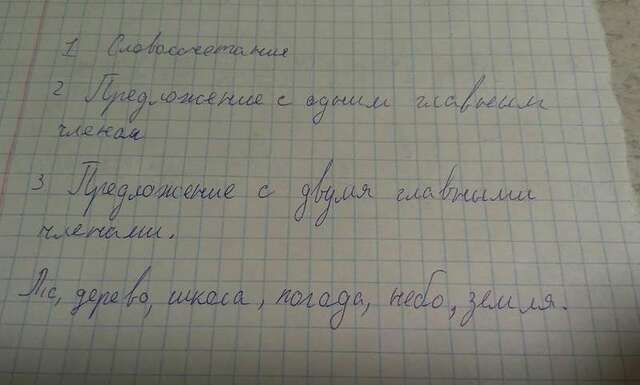 1 Словосочетание
2 Предложение с одним главным
членом
3 Предложение с двумя главными
членами.
Лес, дерево, школа, погода, небо, земля.